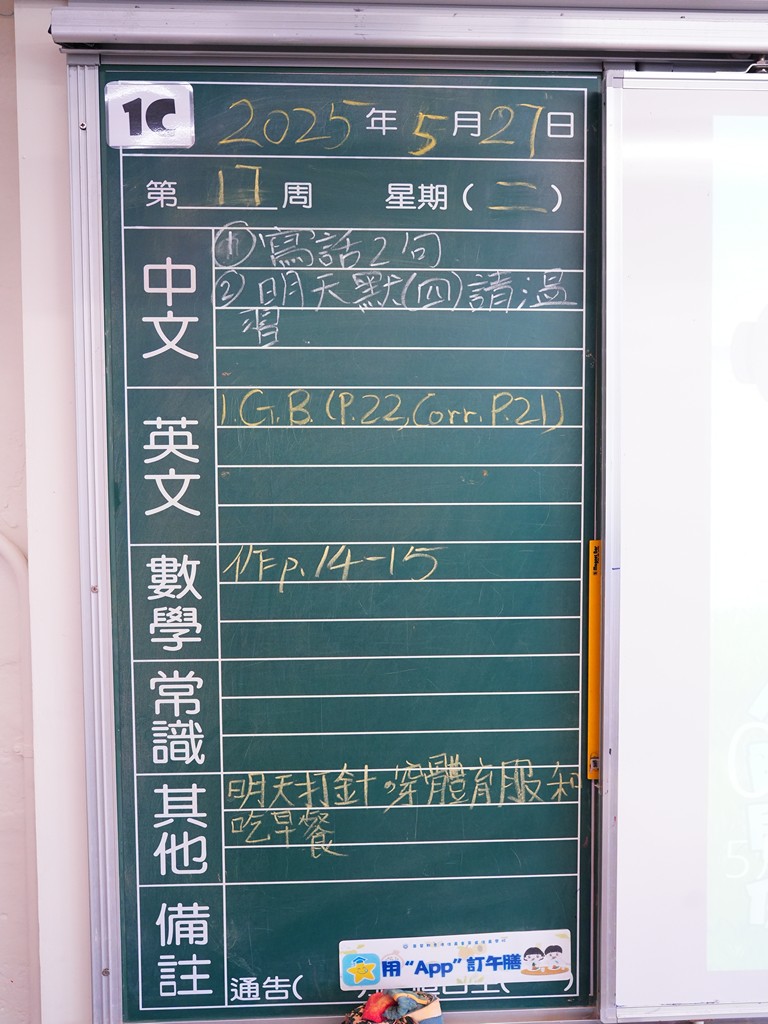 1C
2025年5月27日
第17周 星期(二)
中文
①寫話2句
②明天默(四)請溫
習
英文
1.G.B.(P.22,Corr.P.21)
數學
作p.14-15
常識
其他
明天打針。穿體育服和
吃早餐
備註
用“App”訂午膳
通告(